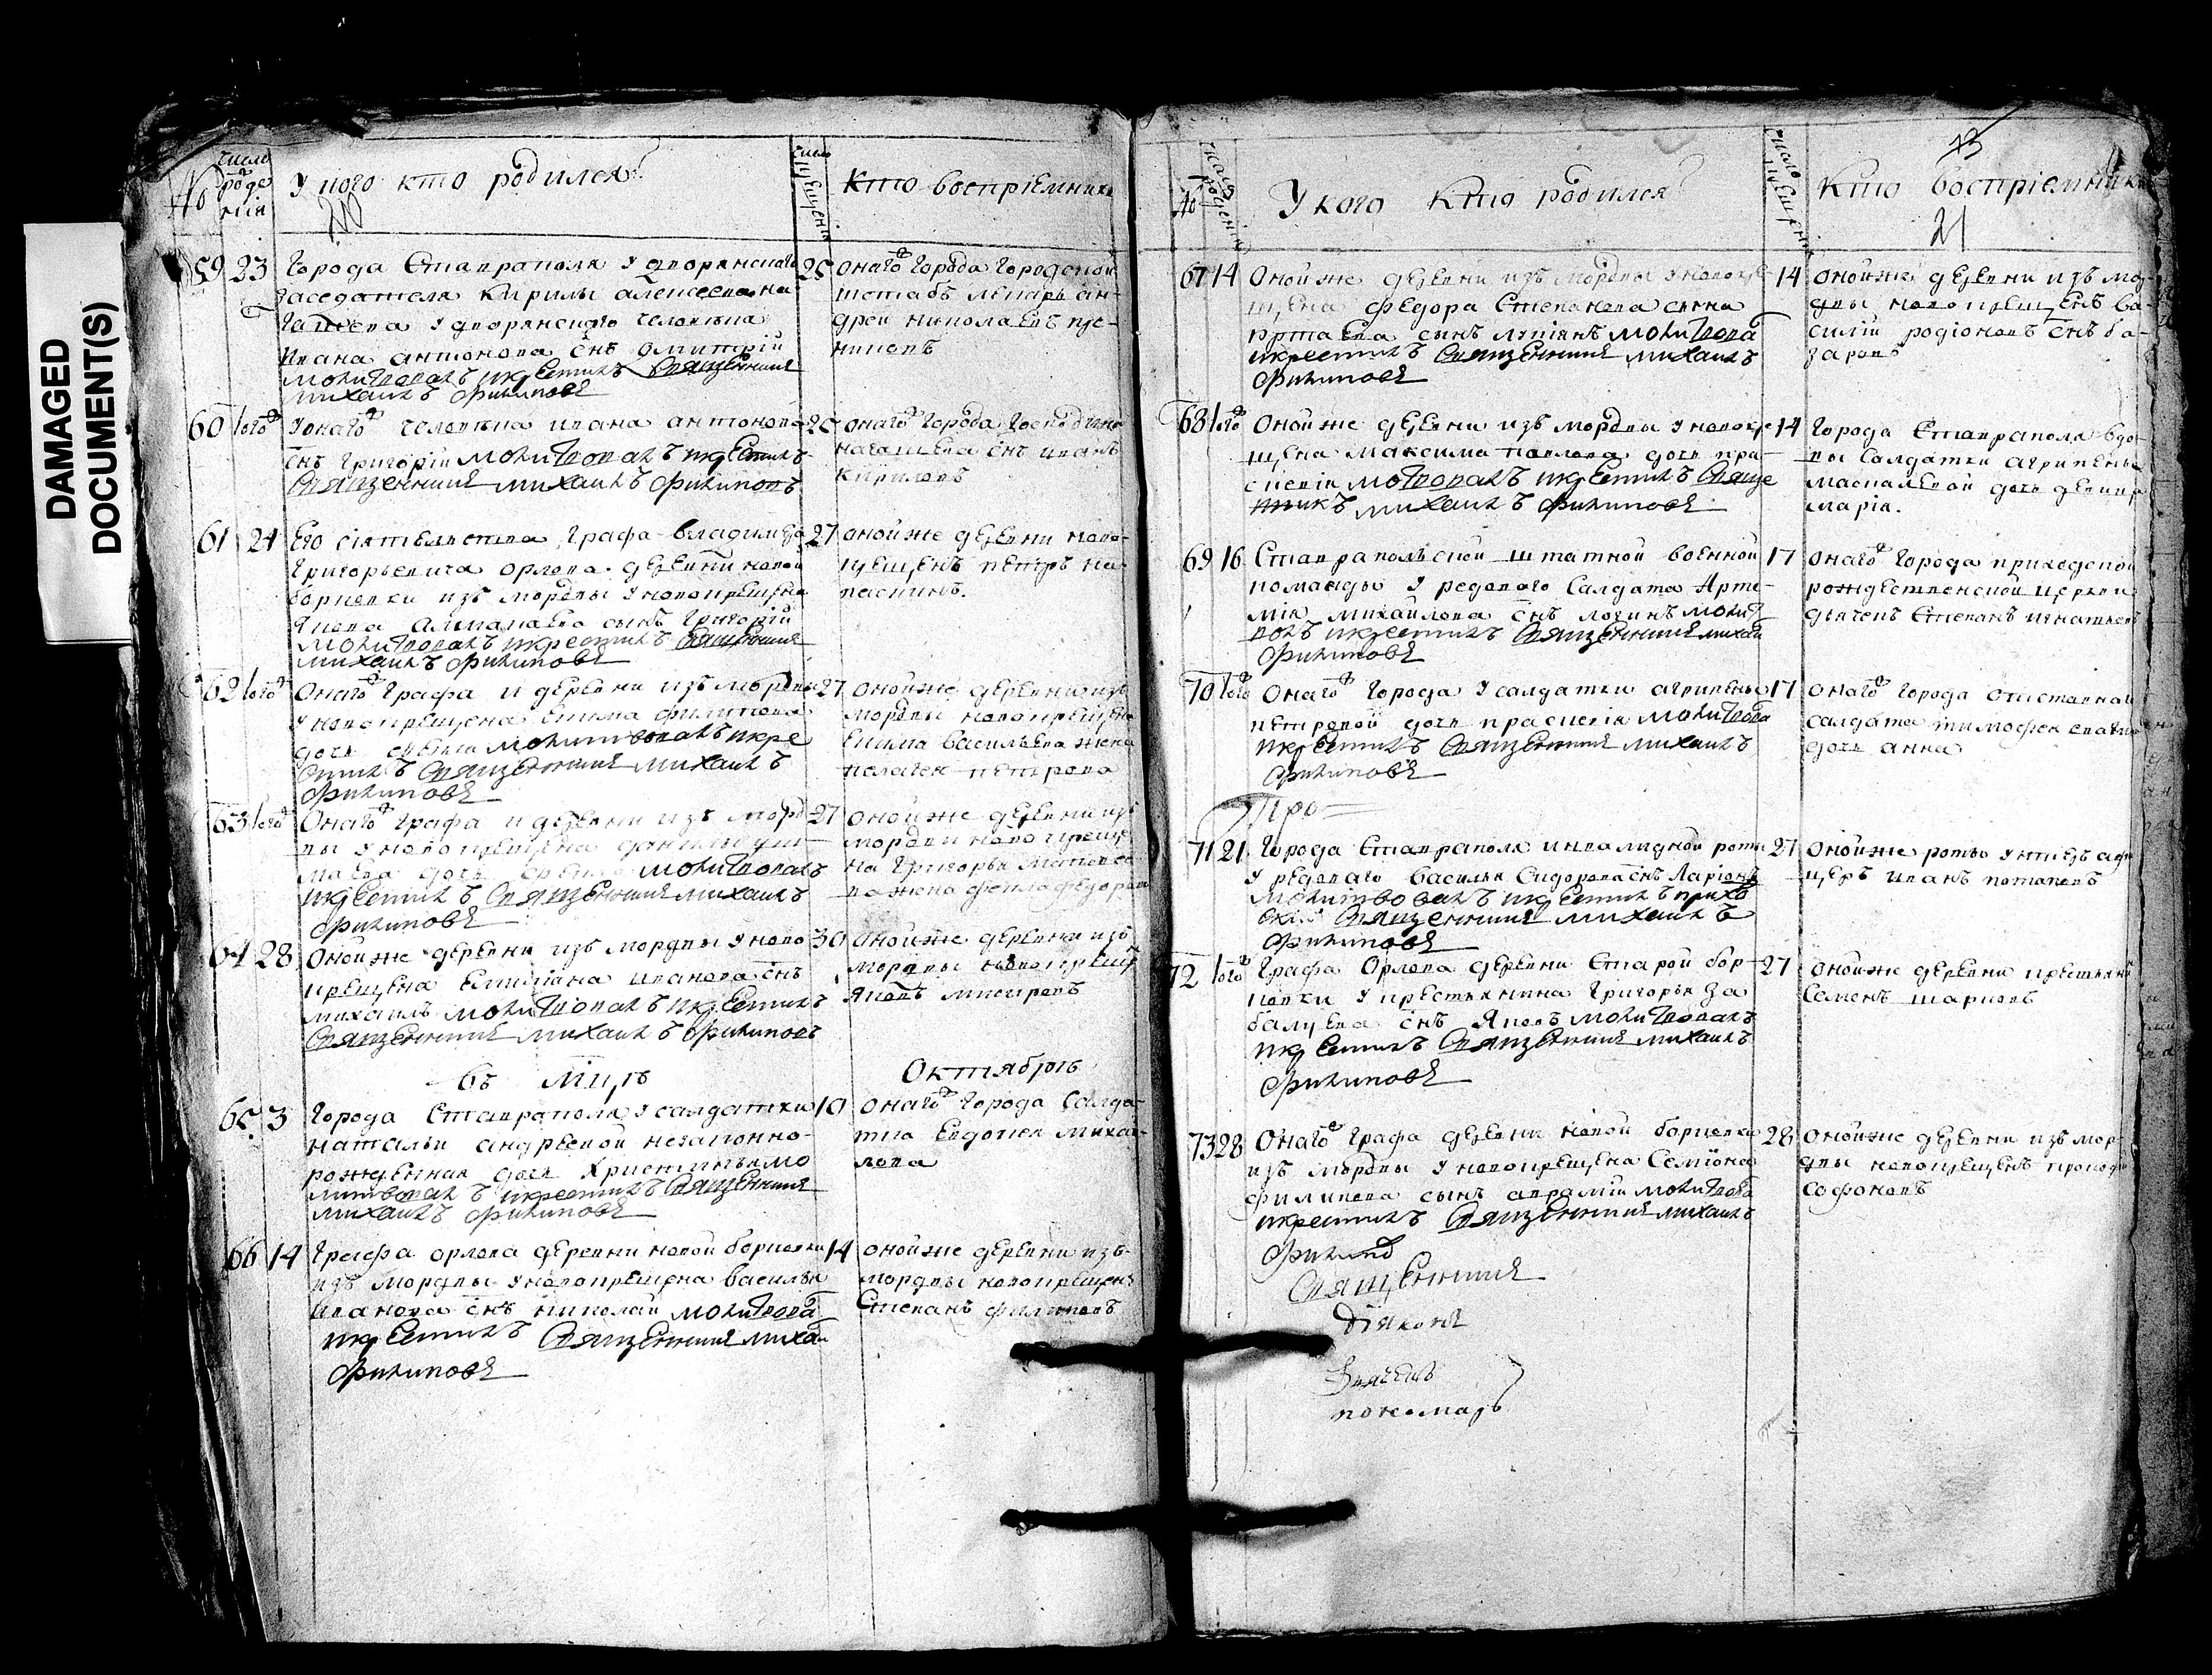 DAMAGED
DOCUMENT(S)
№
число рождения
У кого кто родился
число крещения
Кто восприемникъ
20
59 23
Города Ставраполя у дворянскаго
заседателя Кирилы Алексеева На
гаткина у дворянскаго человека
Ивана Антонова снъ Дмитрій
молитвовалъ и крестилъ Священникъ
Михаилъ Филиповъ
25
онаго города городской
штабъ лекарь Ан-
дрей Николаевъ
60 того
У онаго человека Ивана Антонова
снъ Григорій молитвовалъ и крестилъ
Священникъ Михаилъ Филиповъ
26
онаго города господина
снъ Иванъ
Кириловъ
61 24
Его сіятельства графа Владимера
Григорьевича Орлова деревни новой
борковки изъ мордвы у новокрещена
Якова сынъ Григорій
молитвовалъ и крестилъ Священникъ
Михаилъ Филиповъ
27
оной же деревни ново-
крещенъ Петръ
62 того
Онаго графа и деревни изъ мордвы
у новокрещена Ефима Филипова
дочь молитвовалъ и кре
стилъ Священникъ Михаилъ
Филиповъ
27
оной же деревни изъ
мордвы новокрещена
Васильева жена
Пелагея Петрова
63 того
Онаго графа и деревни изъ морд
вы у новокрещена Данилы
дочь молитвовалъ
и крестилъ Священникъ Михаилъ
Филиповъ
27
оной же деревни изъ
мордвы новокреще
на Григорья Матвее
ва жена Фекла Федорова
64 28
Оной же деревни изъ мордвы у ново
крещена Емилiана Иванова снъ
Михаилъ молитвовалъ и крестилъ
Священникъ Михаилъ Филиповъ
30
оной же деревни изъ
мордвы новокрещен
Яковъ
Въ Мцъ Октябрь
65 3
Города Ставраполя у салдатки
Натальи Андреевой незаконно-
рожденная дочь Христинья мо
литвовалъ и крестилъ Священникъ
Михаилъ Филиповъ
10
онаго города салда-
тка Евдокея Михаи-
лова
66 14
Графа Орлова деревни новой борковки
изъ мордвы у новокрещена Василья
Иванова снъ Николай молитвова
и крестилъ Священникъ Михаи
Филиповъ
14
оной же деревни изъ
мордвы новокрещенъ
Степанъ Филиповъ
№
число рождения
У кого кто родился
число крещения
13
Кто восприемникъ
21
67 14
Оной же деревни изъ мордвы у новокре
щена Федора Степанова сына
сынъ Лукіянъ молитвова
и крестилъ Священникъ Михаилъ
Филиповъ
14
оной же деревни изъ мор
двы новокрещенъ Ва
силій Родіоновъ снъ
68 того
Оной же деревни изъ мордвы у новокре
щена Максима Павлова дочь Пра-
сковія молитвовалъ и крестилъ Священ
никъ Михаилъ Филиповъ
14
города Ставраполя вдо-
вы салдатки Агрипены
дочь девица
Марія.
69 16
Ставрапольской штатной военной
команды у редоваго салдата Арте-
мія Михайлова снъ Логинъ молит
валъ и крестилъ Священникъ Михаи
Филиповъ
17
онаго города приходской
рождественской церкви
дьячекъ Степанъ Игнатьевъ
70 того
Онаго города у салдатки Агрипены
Петровой дочь Прасковія молитвова
и крестилъ Священникъ Михаилъ
Филиповъ
17
онаго города отставнаго
салдата Тимофея
дочь Анна
Про
71 21
Города Ставраполя инвалидной роты
у редоваго Василья Сидорова снъ Ларіонъ
молитвовалъ и крестилъ прихо
Священникъ Михаилъ
Филиповъ
27
оной же роты унтеръ афи
церъ Иванъ Потаповъ
72 того
Графа Орлова деревни Старой бор-
ковки у крестьянина Григорья За
балуева снъ Яковъ молитвовалъ
и крестилъ Священникъ Михаилъ
Филиповъ
27
оной же деревни крестьянинъ
Семенъ Шарковъ
73 28
Онаго графа деревни новой борковки
изъ мордвы у новокрещена Семіона
Филипова сынъ Аврамій молитвова
и крестилъ Священникъ Михаилъ
Филипов
28
оной же деревни изъ мор
двы новокрещенъ Прокофи
Софоновъ
Священникъ
Діяконъ
Дьячекъ
пономарь